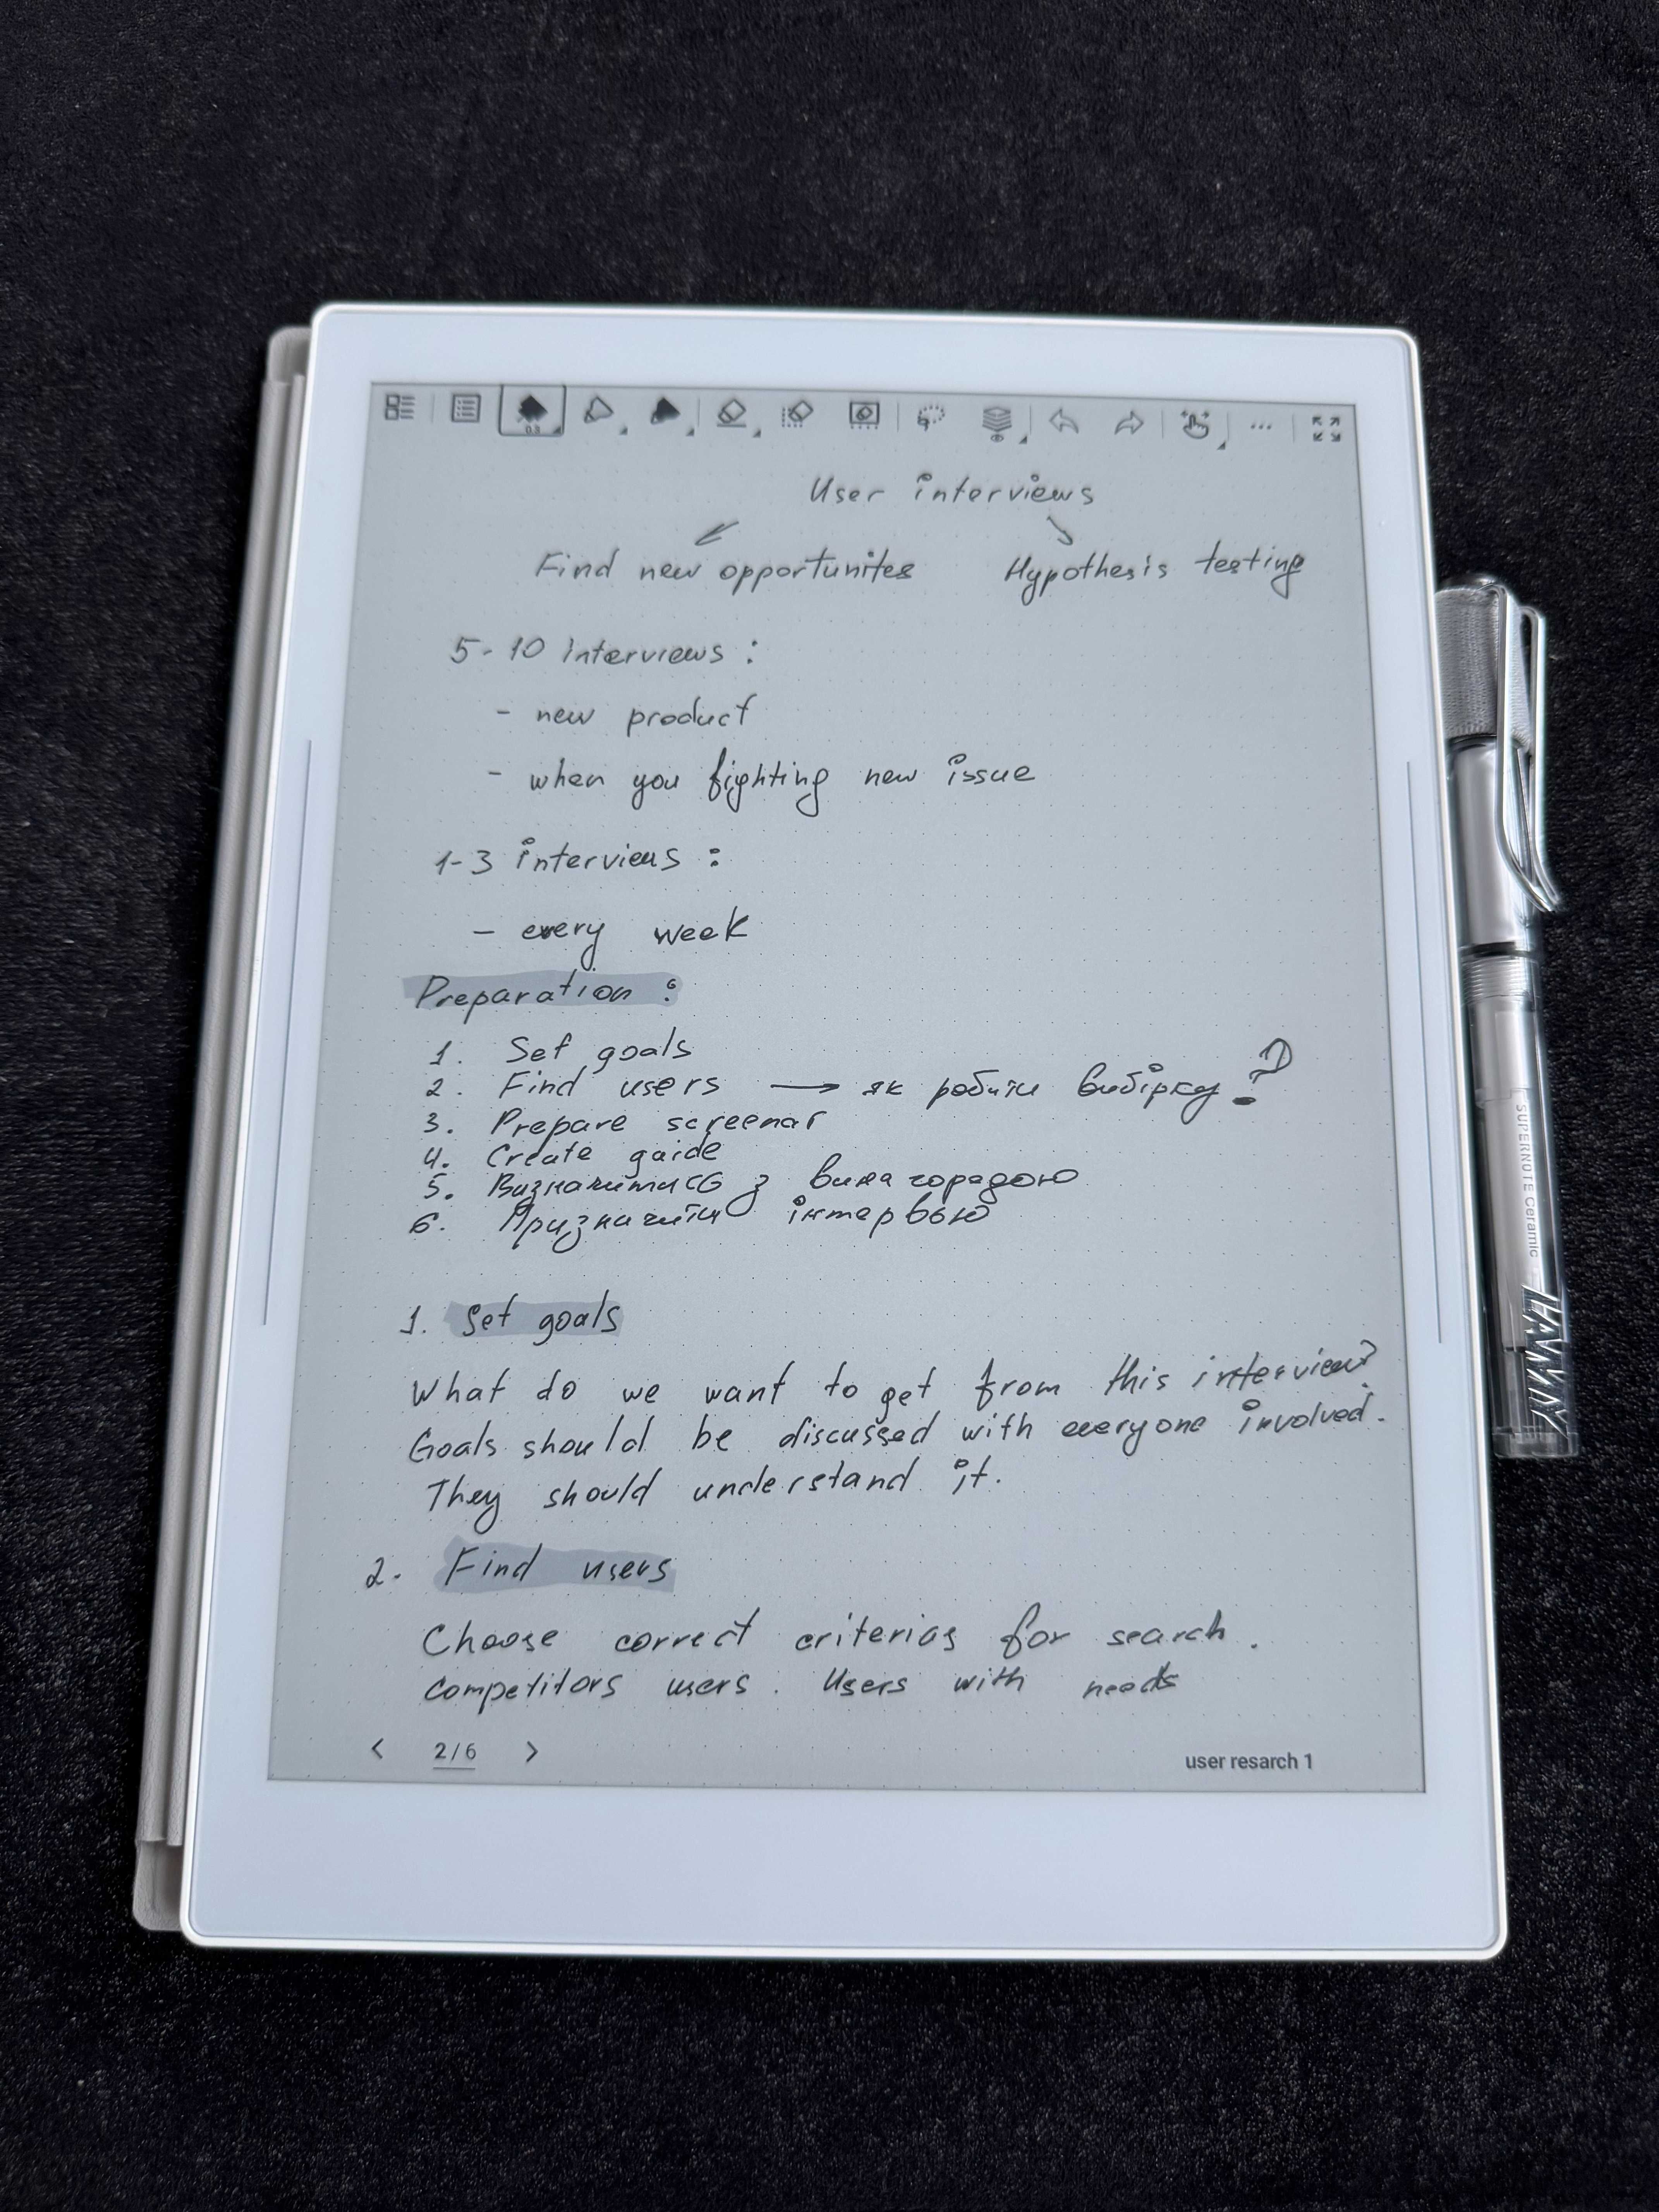 0.3
User interviews
Find new opportunites Hypothesis testing
5-10 interviews :
- new product
- when you fighting new issue
1-3 interviews :
- every week
Preparation :
1. Set goals
2. Find users → як робити вибірку?
3. Prepare screenar
4. Create guide
5. Визначитись з винагородою
6. Призначити інтервью
1. Set goals
What do we want to get from this interview?
Goals should be discussed with everyone involved.
They should understand it.
2. Find users
Choose correct criterias for search.
Competitors users. Users with needs
< 2/6 >
user resarch 1
SUPERNOTE Ceramic
LAMY